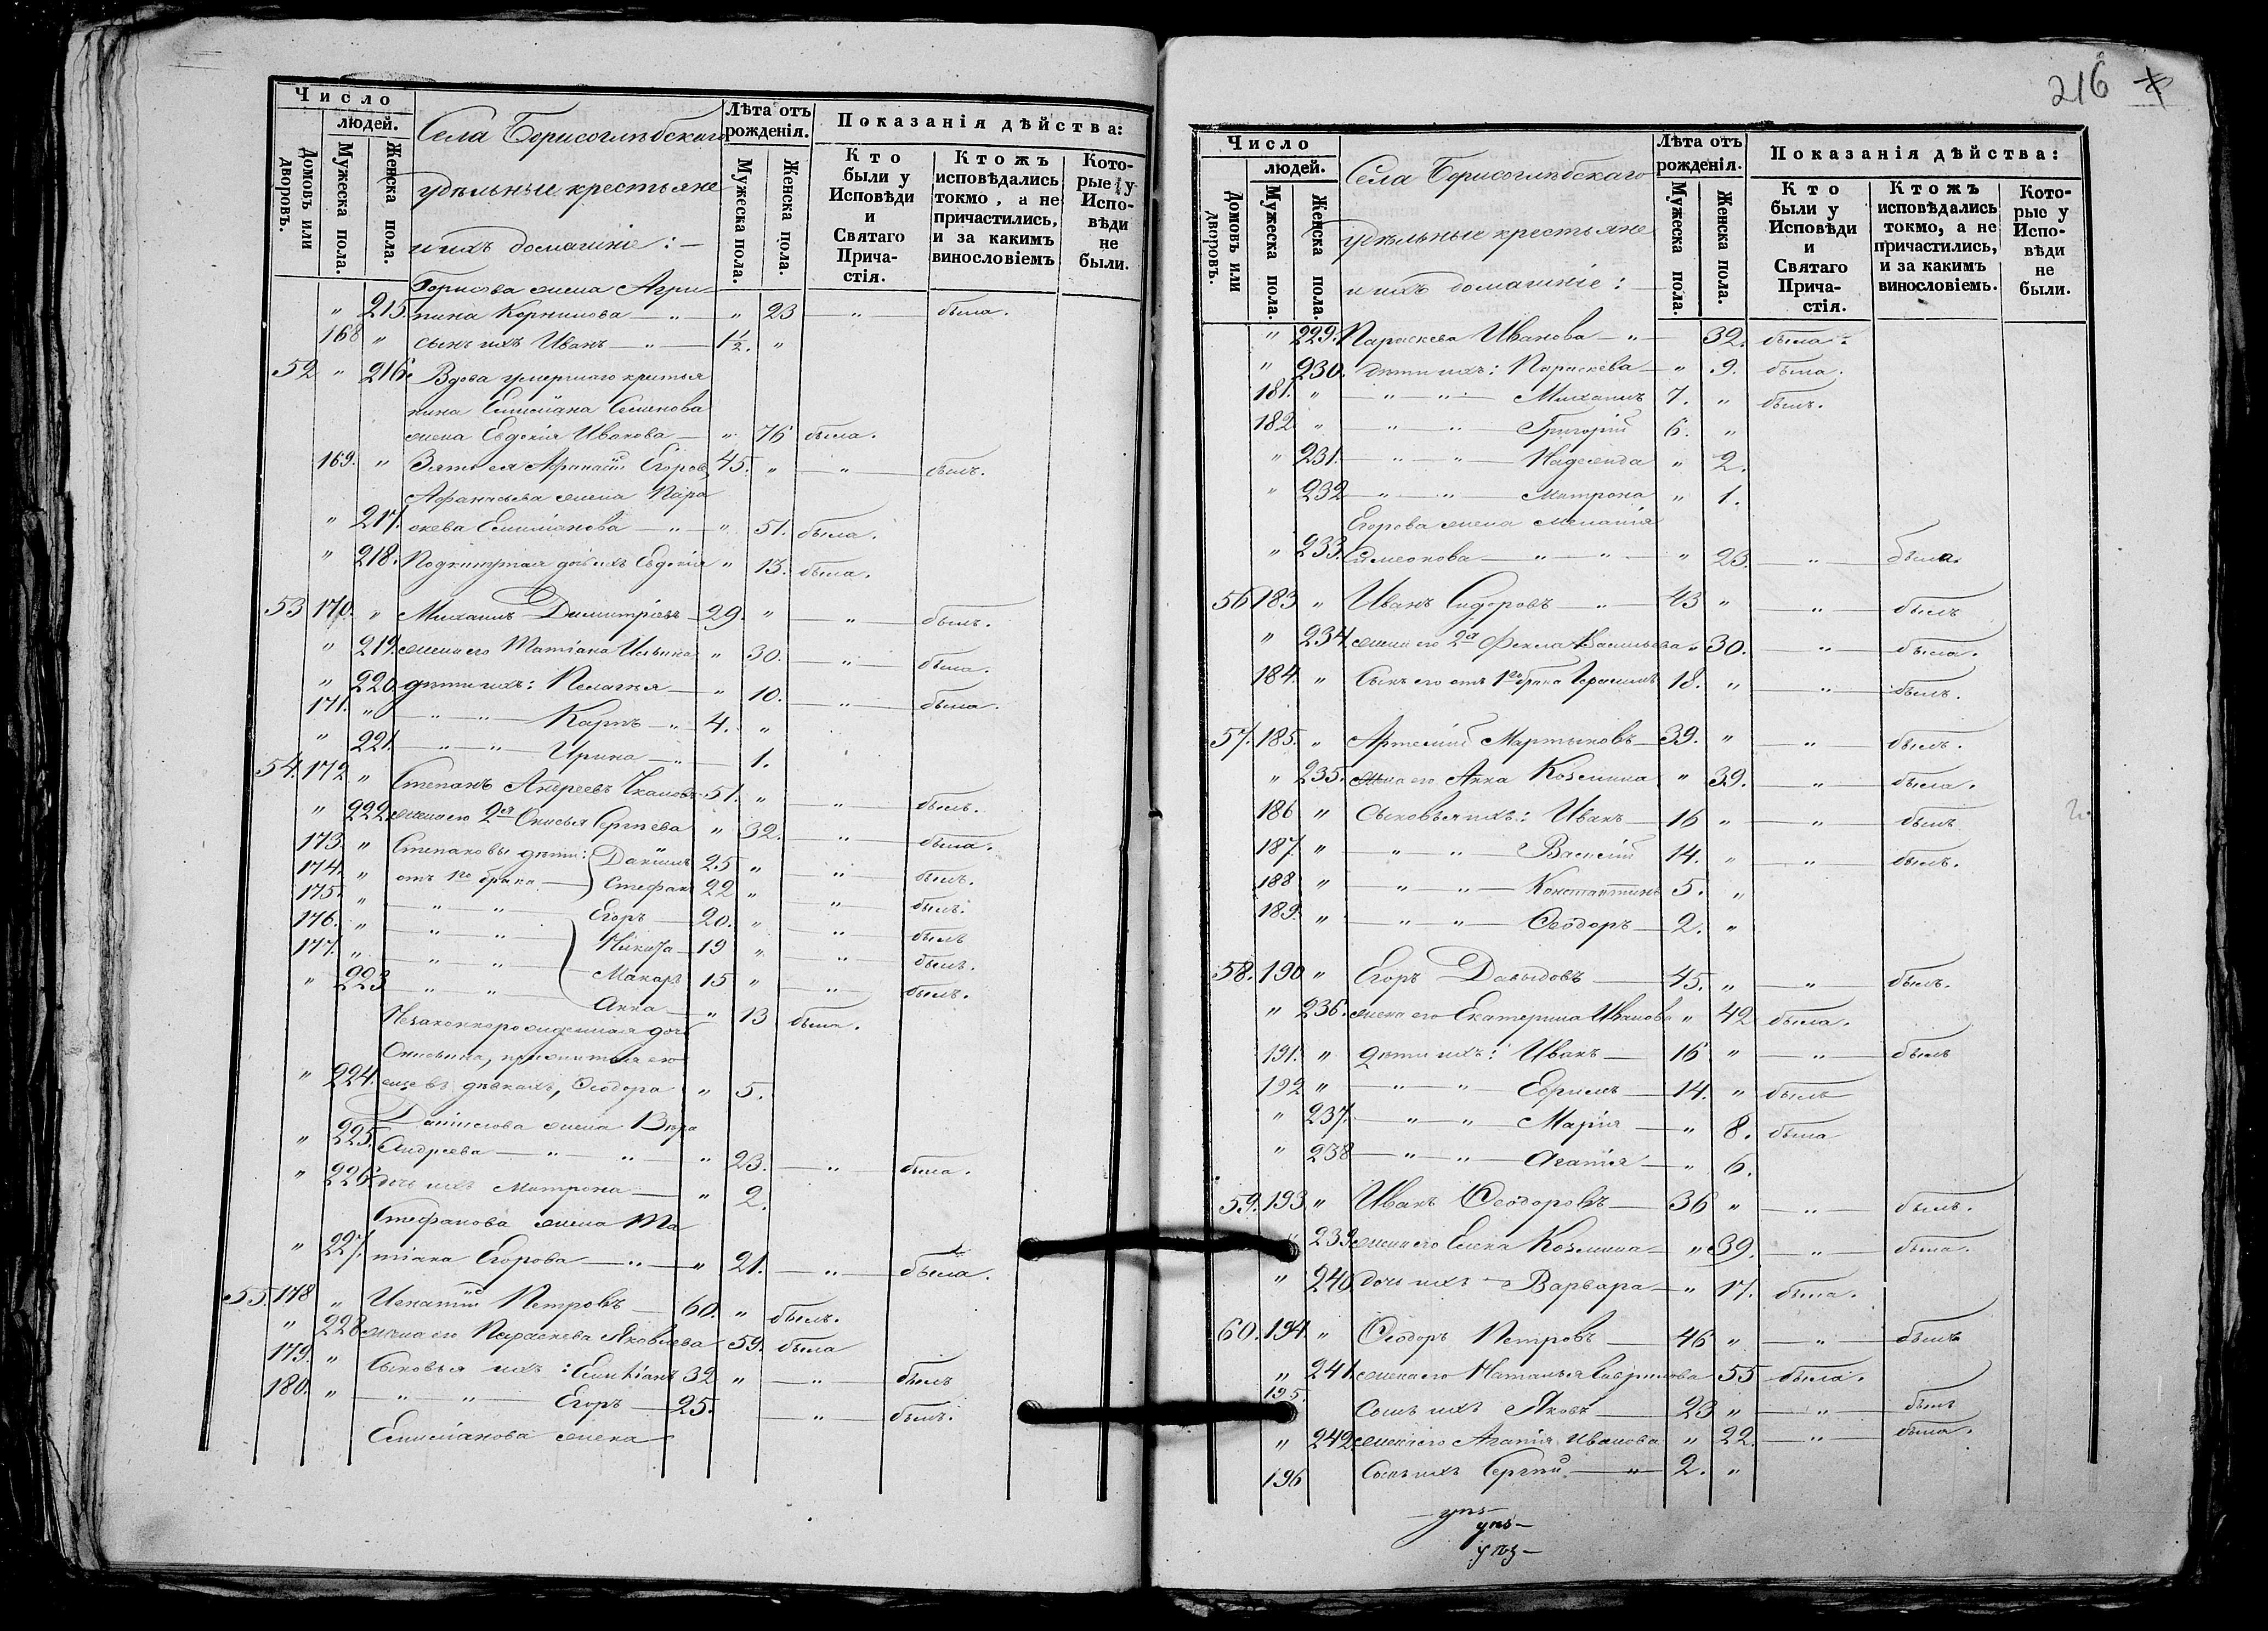 Число
людей.
Домовъ или дворовъ.
Мужеска пола.
Женска пола.
Села Борисоглѣбскаго
удѣльные крестьяне
и ихъ домашніе : —
Лѣта отъ рожденія.
Мужеска пола.
Женска пола.
Показанія дѣйства:
Кто были у Исповѣди и Святаго Причастія.
Ктожъ исповѣдались токмо, а не причастились, и за какимъ винословіемъ
Которые у Исповѣди не были.
Борисова жена Агри-
" 215. пина Корнилова — " — " 23 — " — была.
168 " сынъ ихъ Иванъ — " — 1½. "
52 " 216. Вдова умершаго крестья
нина Емиліана Семенова
жена Евдокія Иванова — " 76 была.
169. " Зять ея Афанасій Егоровъ 45. " — " — былъ.
Афанасьева жена Пара
" 217. скева Емиліанова — " — " 51. была.
" 218. Подкинутая дочь ихъ Евдокія " 13. была.
53 170. " Михаилъ Димитріевъ — 29. " — " — былъ.
" 219. жена его Татіана Ильина " 30. — " — была.
" 220 дѣти ихъ: Пелагея — " 10. — " — была.
171. " — " — " — Карпъ — " 4. "
" 221. — " — " — Ирина — " — 1.
54. 172 " Степанъ Андреевъ 51. " — " — былъ.
" 222. жена его 2я Анисья Сергѣева " 32. — " — была.
173. " Степановы дѣти: Даніилъ 25 " — " — былъ.
174. " отъ 1го брака — Стефанъ 22 " — " — былъ.
175. " — " — " — Егоръ — 20. " — " — былъ
176. " — " — " — Никита — 19 " — " — былъ.
177. " — " — " — Макаръ 15 " — " — былъ.
" 223 — " — " — Анна — " 13 была.
Незаконнорожденная дочь
Анисьина, прижитая ею
" 224. еще въ дѣвкахъ, Ѳеодора " 5.
Даніилова жена Вѣра
" 225. Андреева — " — " — " 23. — " — была.
" 226. дочь ихъ Матрона — " 2.
Стефанова жена Та
" 227. тіана Егорова — " — " 21. — " — была.
55. 178 " Игнатій Петровъ — 60. " былъ.
" 228 жена его Параскева Яковлева 59. была
179. " Сыновья ихъ : Емиліанъ 32 " — " — былъ
180. " — " — " — Егоръ — 25. — " — былъ.
Емиліанова жена
216
Число
людей.
Домовъ или дворовъ.
Мужеска пола.
Женска пола.
Села Борисоглѣбскаго
удѣльные крестьяне
и ихъ домашніе :
Лѣта отъ рожденія.
Мужеска пола.
Женска пола.
Показанія дѣйства:
Кто были у Исповѣди и Святаго Причастія.
Ктожъ исповѣдались токмо, а не причастились, и за какимъ винословіемъ.
Которые у Исповѣди не были.
" 229. Параскева Иванова — " — 32. была.
" 230. дѣти ихъ: Параскева — " 9. была.
181. " — " — " — Михаилъ 7. " былъ.
182 " — " — " — Григорій 6. "
" 231. — " — " — Надежда " 2.
" 232 — " — " — Матрона " 1.
Егорова жена Меланія
" 233. Симеонова — " — " — " 23. — " — была.
56 183 " Иванъ Сидоровъ — " — 43 " — " — былъ
" 234 жена его 2я Фекла Васильева " 30. — " — была.
184. " Сынъ его отъ 1го брака Герасимъ 18. " — " — былъ.
57. 185. " Артемій Мартыновъ — 39. " — " — былъ.
" 235. жена его Анна Козмина " 39. — " — была.
186 " Сыновья ихъ: Иванъ — 16 " — " — былъ
187. " — " — " — Василій 14. " — " — былъ.
188 " — " — " — Константинъ 5. "
189. " — " — " — Ѳеодоръ — 2. "
58. 190 " Егоръ Давыдовъ — 45. " — " — былъ.
" 236. жена его Екатерина Иванова " 42 была.
191. " дѣти ихъ: Иванъ — 16 " — " — былъ
192 " — " — " — Ефремъ — 14. " былъ
" 237. — " — " — Марія — " 8. была
" 238 — " — " — Агапія — " 6.
59. 193 " Иванъ Ѳеодоровъ — 36 " — " — былъ.
" 239 жена его Елена Козмина — " 39. — " — была.
" 240 дочь ихъ — Варвара — " 17. была.
60. 194. " Ѳеодоръ Петровъ — 46 " — " — былъ
" 241 жена его Наталья Гаврилова 55 была.
195 Сынъ ихъ Яковъ — 23 " — " — былъ
" 242 жена его Агапія Иванова " 22. — " — была.
196 Сынъ ихъ Сергѣй — " — 2. "